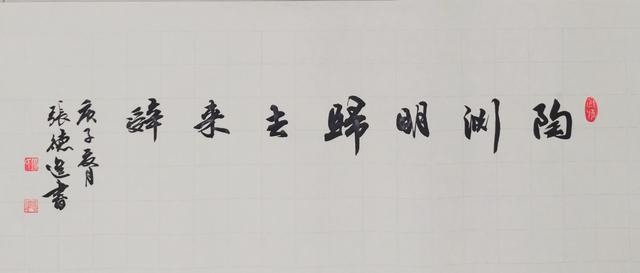 陶渊明歸去来辞
庚子夏月
張德書